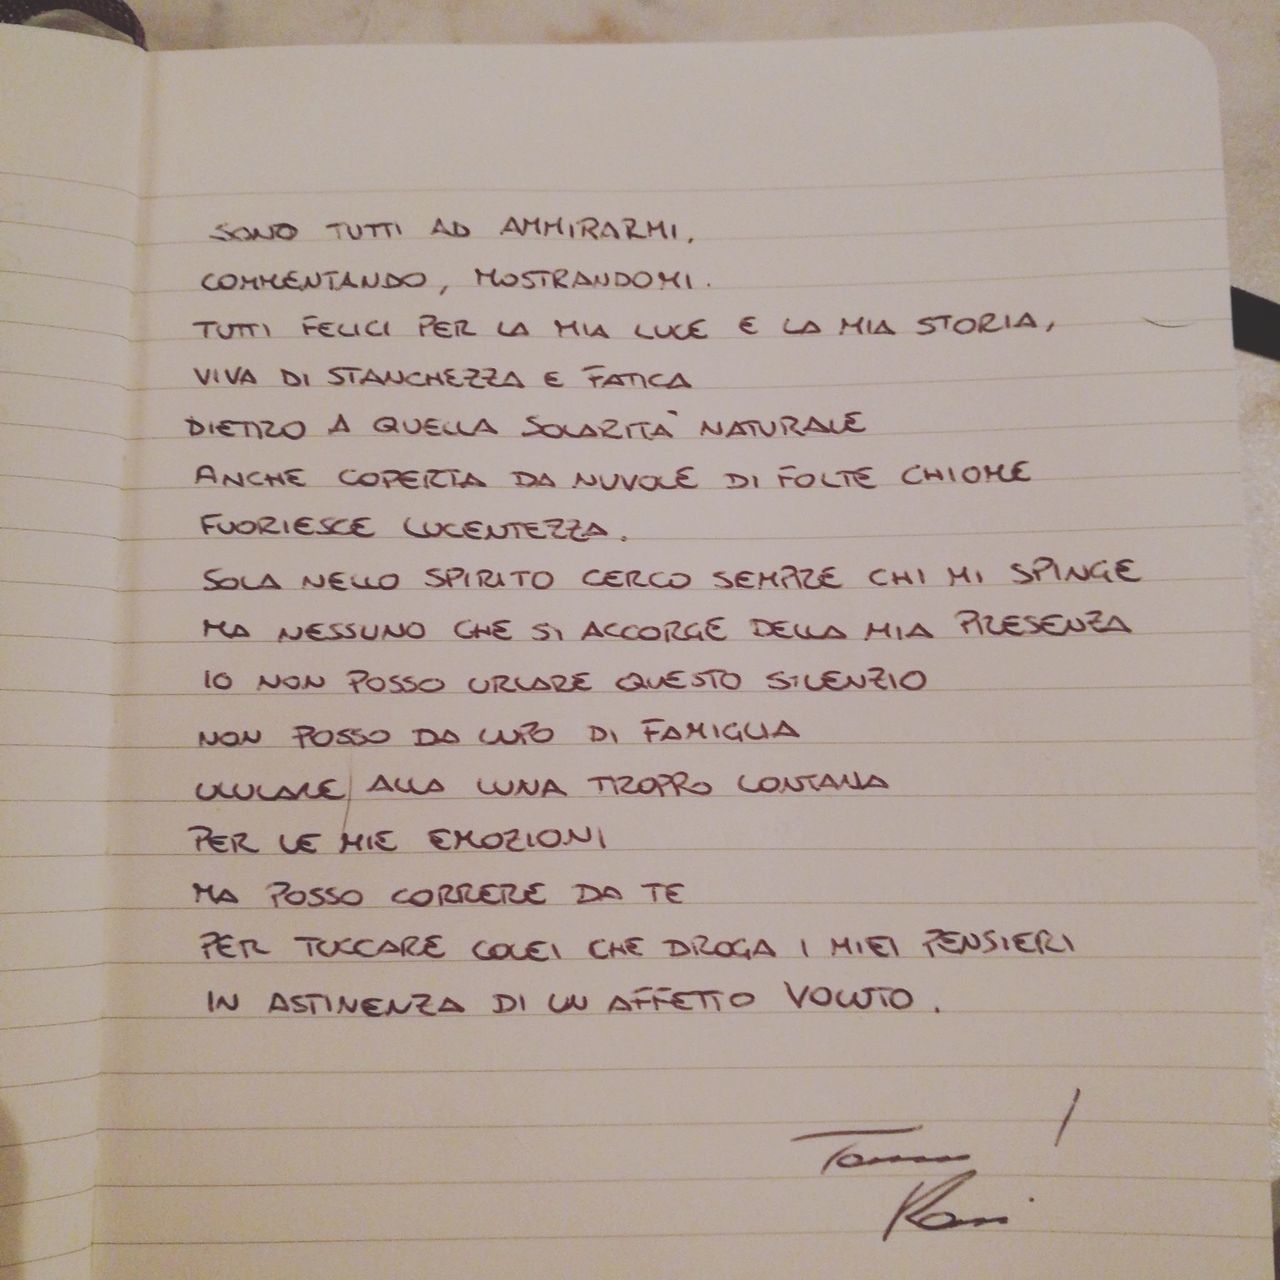 SONO TUTTI AD AMMIRARMI,
COMMENTANDO, MOSTRANDOMI.
TUTTI FELICI PER LA MIA LUCE E LA MIA STORIA,
VIVA DI STANCHEZZA E FATICA
DIETRO A QUELLA SOLARITÀ NATURALE
ANCHE COPERTA DA NUVOLE DI FOLTE CHIOME
FUORIESCE LUCENTEZZA.
SOLA NELLO SPIRITO CERCO SEMPRE CHI MI SPINGE
MA NESSUNO CHE SI ACCORGE DELLA MIA PRESENZA
IO NON POSSO URLARE QUESTO SILENZIO
NON POSSO DA LUPO DI FAMIGLIA
ULULARE ALLA LUNA TROPPO LONTANA
PER LE MIE EMOZIONI
MA POSSO CORRERE DA TE
PER TOCCARE COLEI CHE DROGA I MIEI PENSIERI
IN ASTINENZA DI UN AFFETTO VOLUTO.